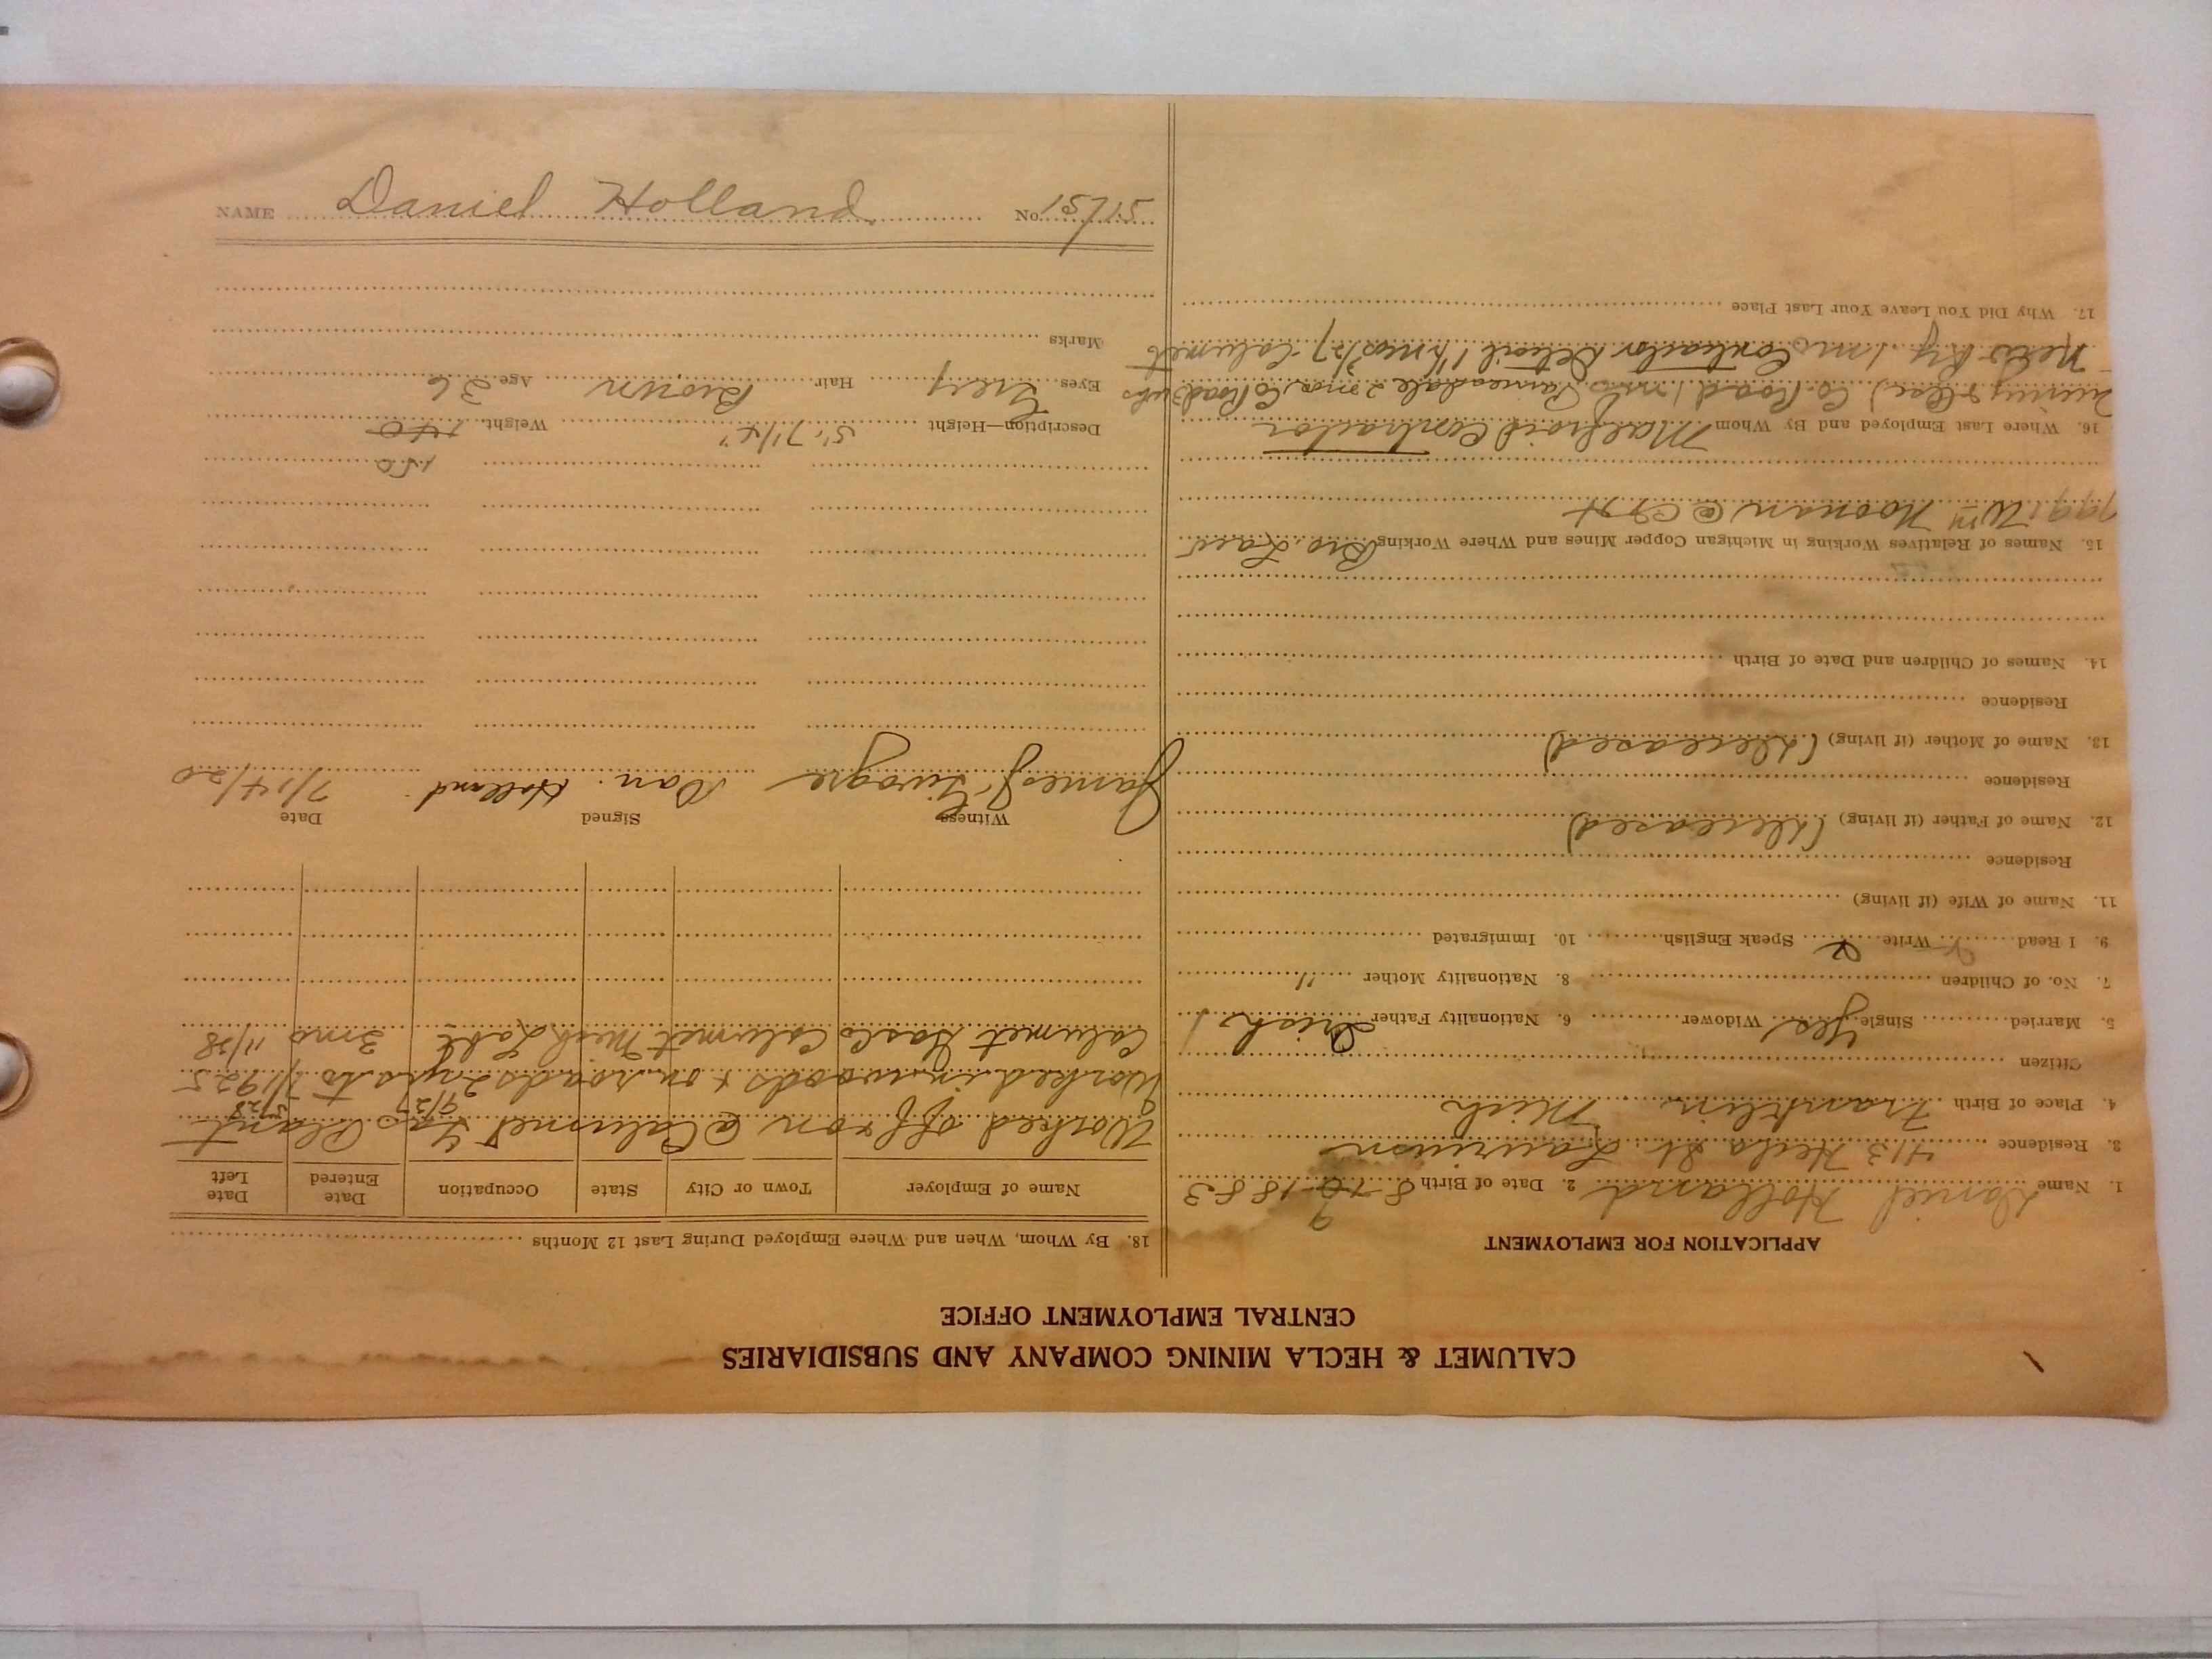 CALUMET & HECLA MINING COMPANY AND SUBSIDIARIES
CENTRAL EMPLOYMENT OFFICE
APPLICATION FOR EMPLOYMENT
1. Name Daniel Holland 2. Date of Birth 8-16-1883
9
3. Residence 413 Hecla St. Laurium
4. Place of Birth Franklin Mich
Citizen
5. Married Single Yes Widower 6. Nationality Father Irish
7. No. of Children 8. Nationality Mother "
9. I Read Write Speak English 10. Immigrated
11. Name of Wife (if living)
Residence
12. Name of Father (if living) (Deceased)
Residence
13. Name of Mother (if living) (Deceased)
Residence
14. Names of Children and Date of Birth
15. Names of Relatives Working in Michigan Copper Mines and Where Working Bro. Law
Wm Noonan @
16. Where Last Employed and By Whom Contractor
Co. Road 1 mo 2 mos Co Road
Ry 1 mo Contractor Detroit 1½ mos Calumet
17. Why Did You Leave Your Last Place
18. By Whom, When and Where Employed During Last 12 Months
Name of Employer Town or City State Occupation Date Entered Date Left
Worked off & on @ Calumet Gas Plant
9/27 3/28
Worked in woods & on roads 2 yrs to 1/1925
Calumet Gas Co Calumet Mich Labr 3 mo 11/28
Witness Signed Date
James Dan. Holland 7/14/20
150
Description—Height 5' 7 1/4" Weight 140
Eyes Grey Hair Brown Age 36
Marks
NAME Daniel Holland No. 15715